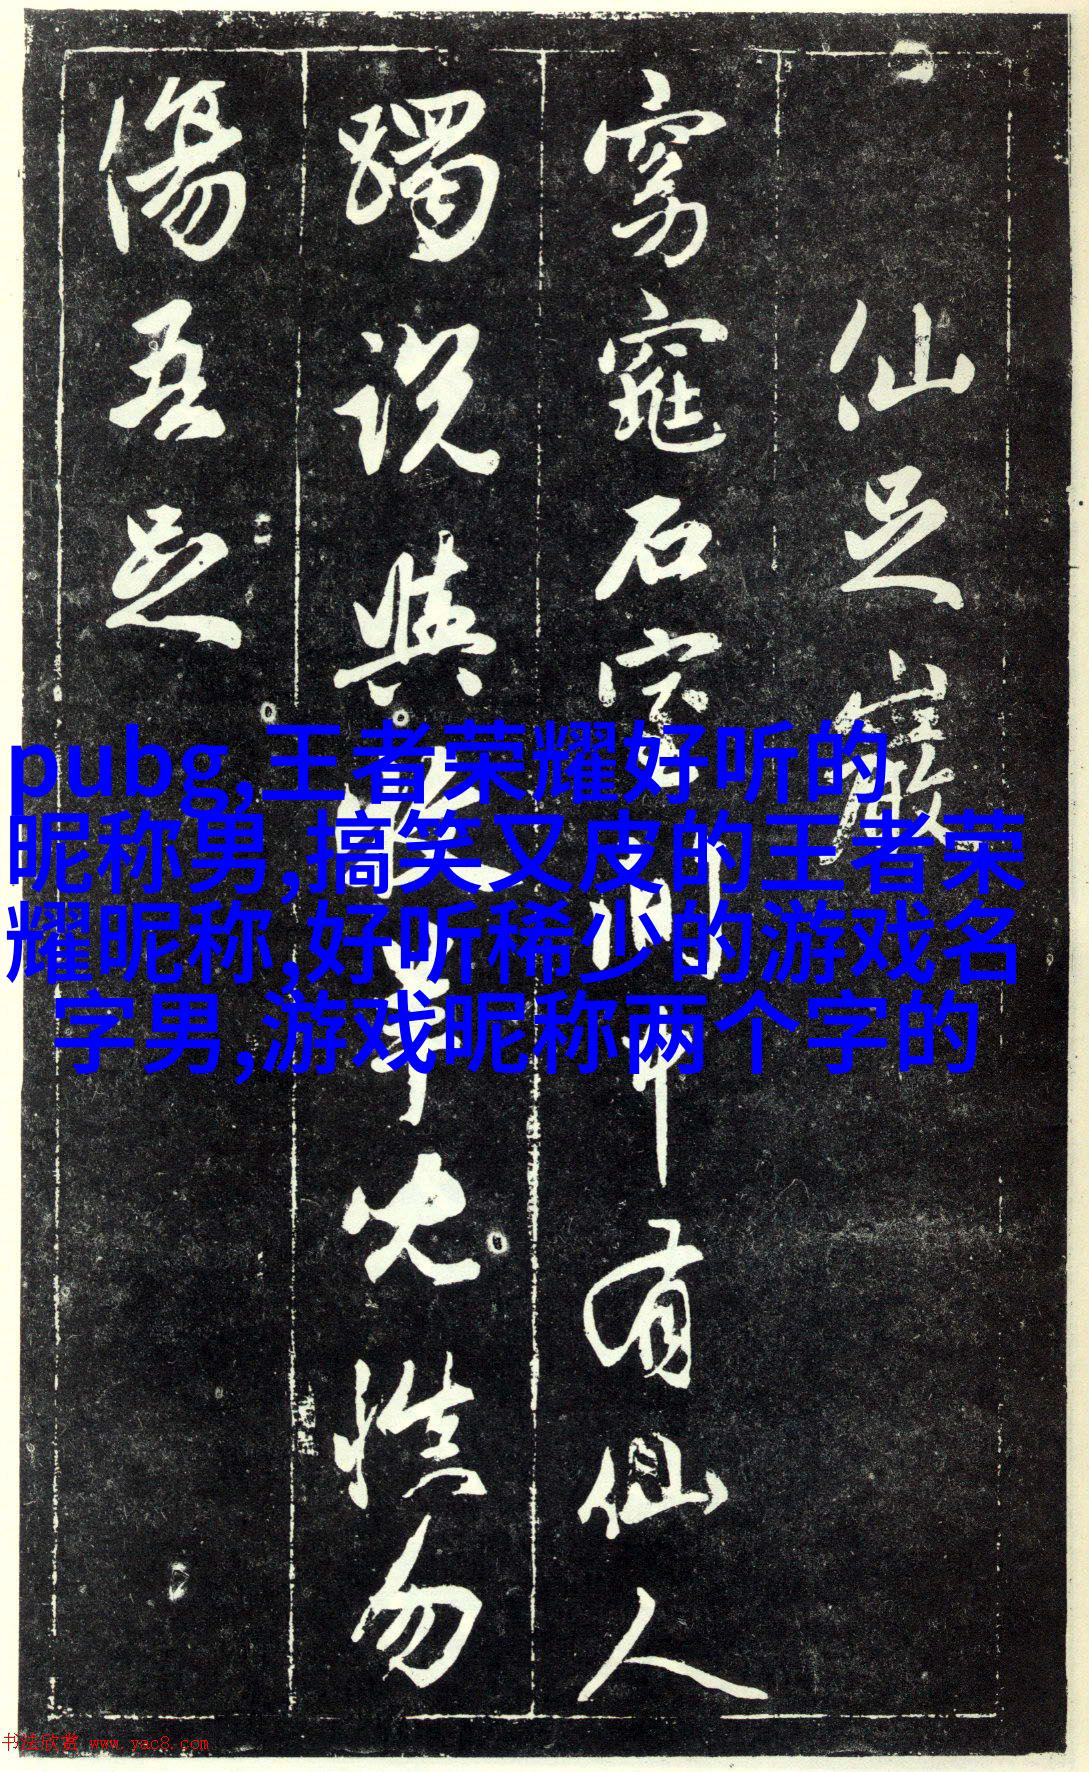 仙足巖
窈窕石室間中有仙人
躅說與
牧羊兒慎勿
傷吾足
pubg,王者荣耀好听的
昵称男,搞笑又皮的王者荣
耀昵称,好听稀少的游戏名
字男,游戏昵称两个字的
书法欣赏 www.yac8.com